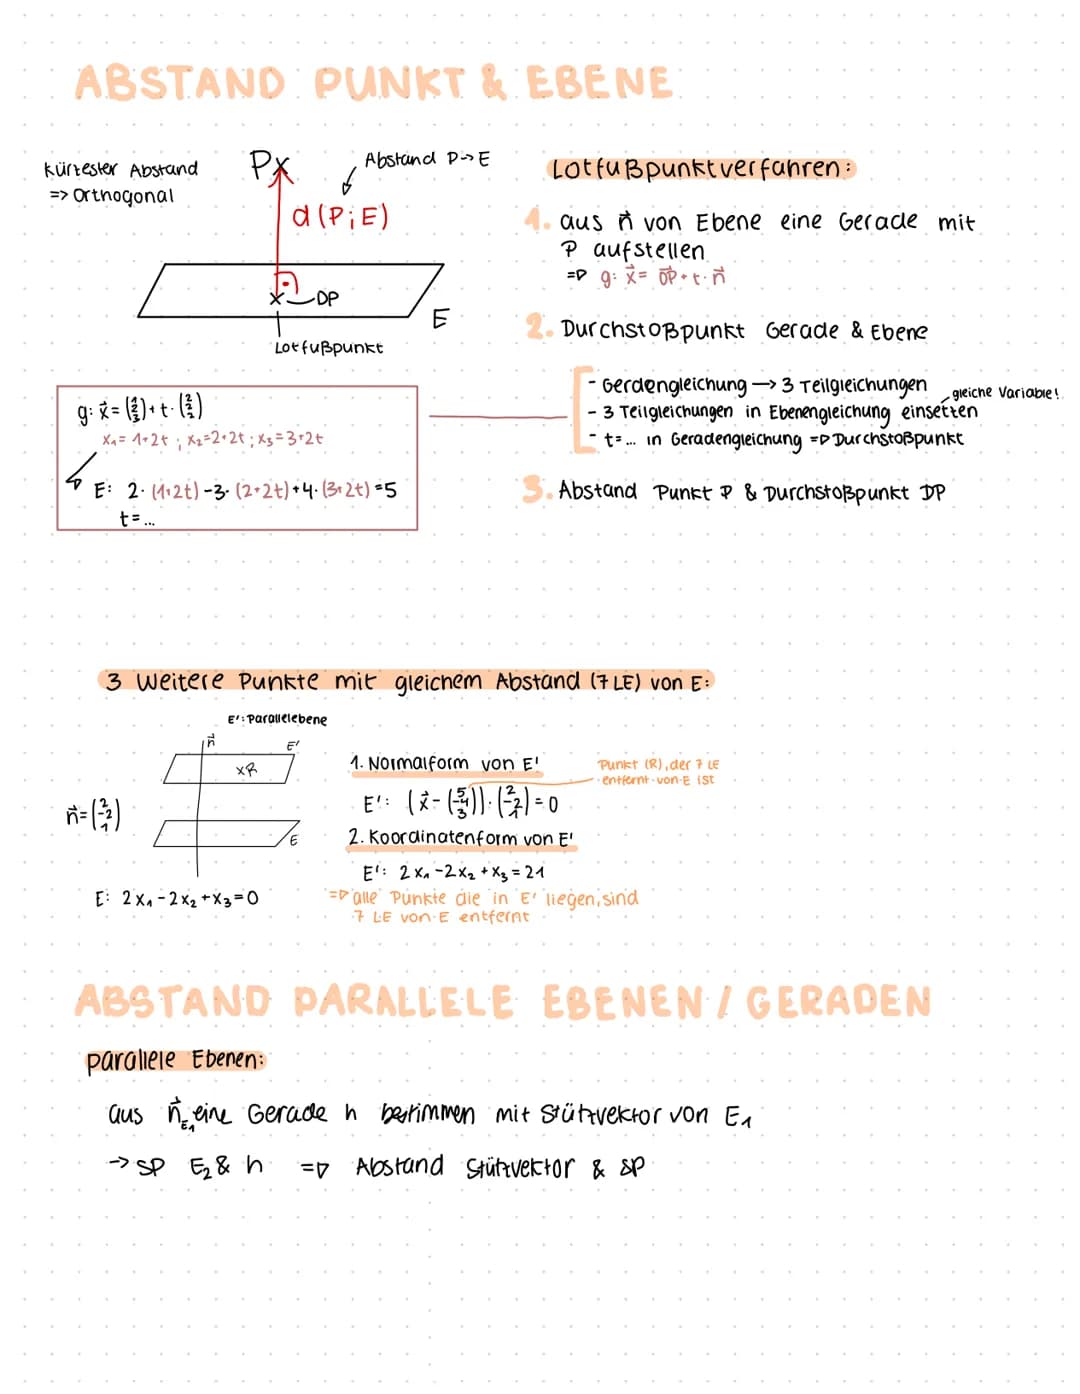 ABSTAND PUNKT & EBENE
kürzester Abstand
=> Orthogonal
Px
Abstand P->E
d(P;E)
x DP
E
Lotfußpunkt
Lotfußpunktverfahren:
1. aus n⃗ von Ebene eine Gerade mit
P aufstellen
=> g: x⃗ = OP⃗ + t · n⃗
2. Durchstoßpunkt Gerade & Ebene
- Gerdengleichung -> 3 Teilgleichungen
gleiche Variable!
- 3 Teilgleichungen in Ebenengleichung einsetzen
- t=... in Geradengleichung => Durchstoßpunkt
3. Abstand Punkt P & Durchstoßpunkt DP
g: x⃗ = (1 2 3) + t · (2 2 2)
x₁ = 1+2t ; x₂=2+2t ; x₃=3+2t
E: 2·(1+2t) -3·(2+2t)+4·(3+2t)=5
t=...
3 weitere Punkte mit gleichem Abstand (7 LE) von E:
E': Parallelebene
n⃗
E'
xR
n⃗=(2 -2 1)
E
E: 2x₁-2x₂+x₃=0
1. Normalform von E'
Punkt (R), der 7 LE
entfernt von E ist
E': (x⃗-(5 -4 3))·(2 -2 1)=0
2. Koordinatenform von E'
E': 2x₁-2x₂+x₃=21
=> alle Punkte die in E' liegen, sind
7 LE von E entfernt
ABSTAND PARALLELE EBENEN / GERADEN
parallele Ebenen:
aus n⃗E₁ eine Gerade h bestimmen mit Stützvektor von E₁
-> SP E₂ & h => Abstand Stützvektor & SP